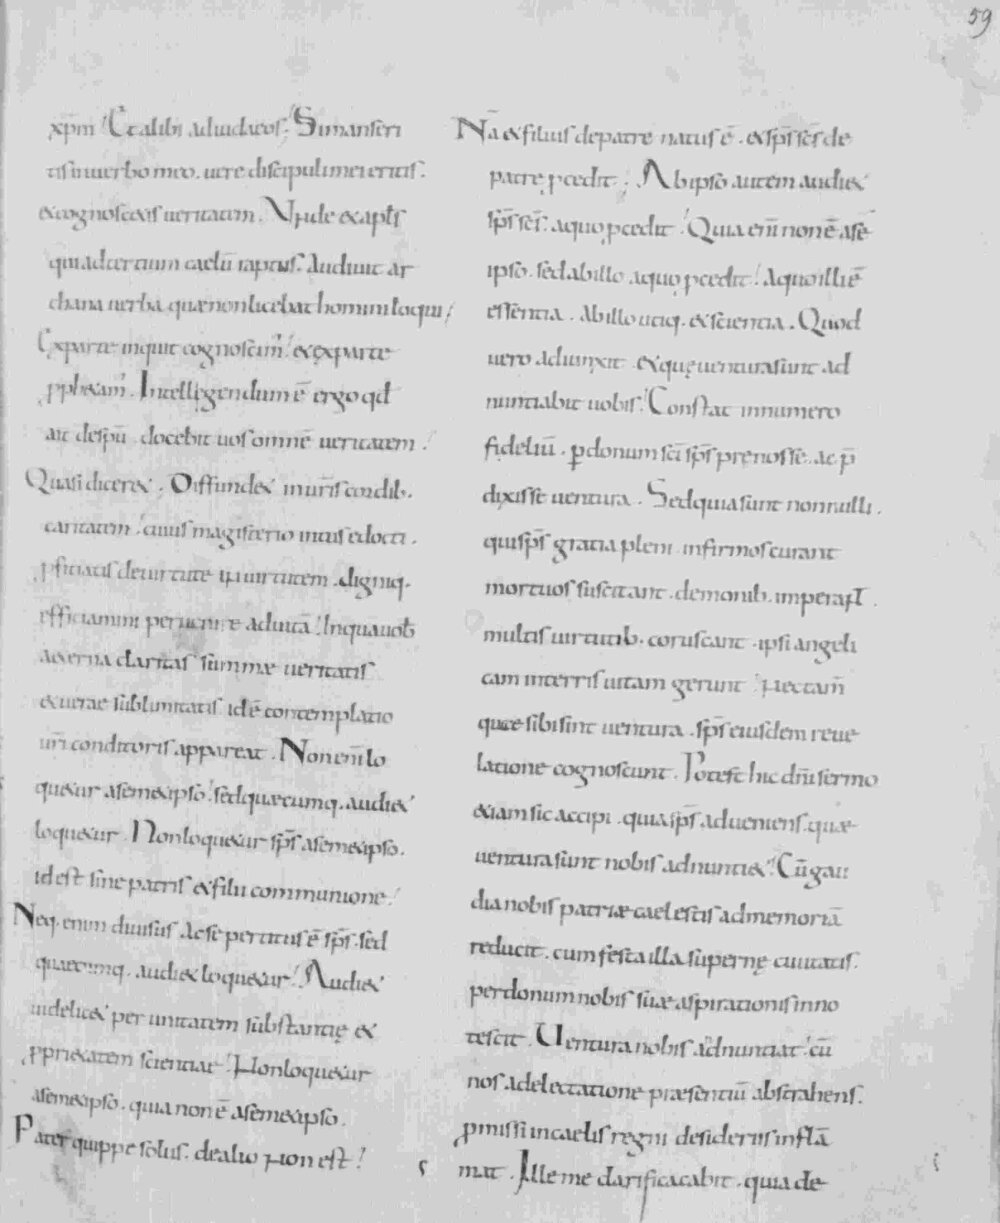 59
xp̄m! Et alibi adiudaeos! Simanseri
tis inuerbo meo. uere discipuli mei eritis.
& cognosc&is ueritatem. Unde & apłs
qui ad tertium caelū raptus. Audiuit ar
chana uerba quae non licebat homini loqui!
Exparte inquit cognoscim'! & exparte
pph&am'. Intellegendum ē ergo qd
ait despū. docebit uos omnē ueritatem!
Quasi dicer&. Diffund& inur̄is cordib.
caritatem! cuius magisterio intus edocti.
pficiatis deuirtute inuirtutem. digniq.
efficiamini peruenire aduitā! Inqua uob
aeterna claritas summae ueritatis
& uerae sublimitatis idē contemplatio
ur̄i conditoris appareat. Non enī lo
qu&ur asem&ipso! sed quaecumq. audi&
loqu&ur. Non loqu&ur sp̄s asem&ipso.
id est sine patris & filii communione!
Neq. enim diuisus ac se pertitus ē sp̄s. sed
quaecumq. audi& loqu&ur! Audi&
uidelic& per unitatem substantię &
ppri&atem scientiae! Non loqu&ur
asem&ipso. quia non ē asem&ipso.
Pater quippe solus. dealio non est!
Nā & filius depatre natus ē. & sp̄s sc̄s de
patre pcedit; Abipso autem audi&
sp̄s sc̄s. aquo pcedit! Quia enī non ē asē
ipso. sed abillo aquo pcedit! Aquo illi ē
essentia. Abillo utiq. & scientia. Quod
uero adiunxit. & quę uentura sunt ad
nuntiabit uobis! Constat innumero
fideliū. p donum sc̄i sp̄s prenosse. ac p̄
dixisse uentura. Sed quia sunt nonnulli.
qui sp̄s gratia pleni infirmos curant
mortuos suscitant. demonib. imperant.
multis uirtutib. coruscant. ipsi angeli
cam interris uitam gerunt! Nectam̄
quae sibi sint uentura. sp̄s eiusdem reue
latione cognoscunt. Potest hic dn̄i sermo
&iam sic accipi. quia sp̄s adueniens. quae
uentura sunt nobis adnunti&! Cū gau
dia nobis patriae caelestis admemoriā
reducit. cum festa illa supernę ciuitatis.
per donum nobis suae aspirationis inno
tescit. Uentura nobis adnuntiat! cū
nos adelectatione praesentiū abstrahens.
pmissi incaelis regni desideriis inflā
mat. Ille me clarificabit. quia de